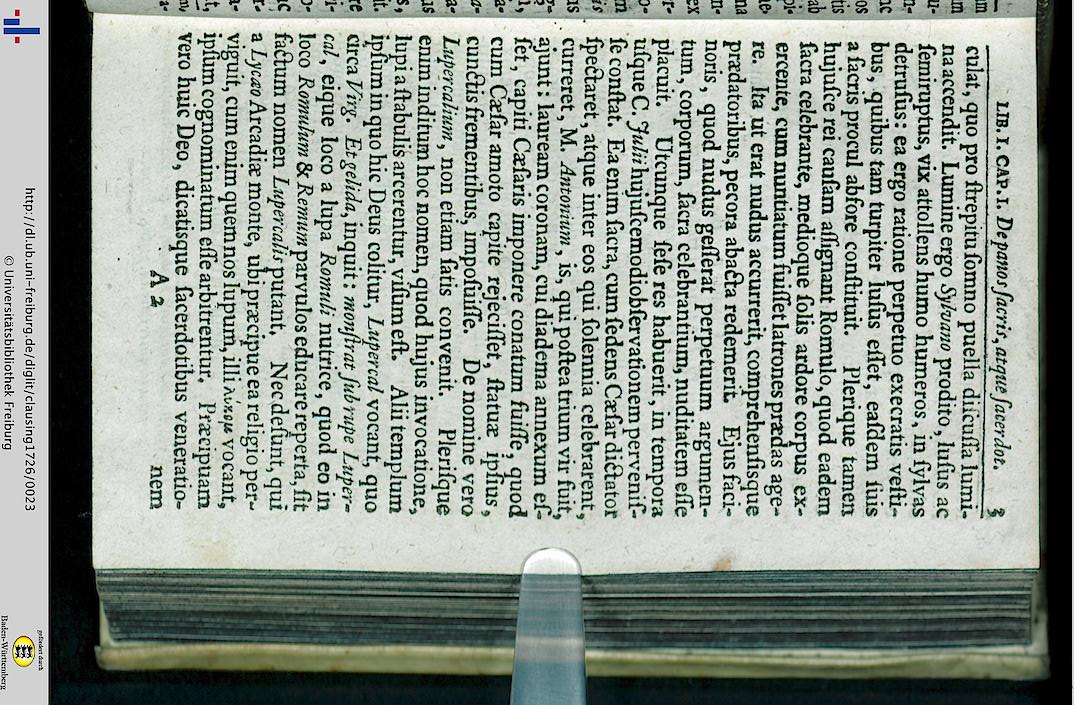 LIB. I. CAP. I. De panos ſacris, atque ſacerdot. 3
culat, quo pro ſtrepitu ſomno puella diſcuſſa lumi-
na accendit. Lumine ergo Sylvano prodito, luſus ac
ſemiruptus, vix attollens humo humeros, in ſylvas
detruſus: ea ergo ratione perpetuo execratis veſti-
bus, quibus tam turpiter luſus eſſet, eaſdem ſuis
a ſacris procul abfore conſtituit. Plerique tamen
hujuſce rei cauſam aſſignant Romulo, quod eadem
ſacra celebrante, medioque ſolis ardore corpus ex-
ercente, cum nuntiatum fuiſſet latrones prædas age-
re. Ita ut erat nudus accurrerit, comprehenſisque
prædatoribus, pecora abacta redemerit. Ejus faci-
noris, quod nudus geſſerat perpetuum argumen-
tum, corporum, ſacra celebrantium, nuditatem eſſe
placuit. Utcunque ſeſe res habuerit, in tempora
uſque C. Julii hujuſcemodi obſervationem perveniſ-
ſe conſtat. Ea enim ſacra, cum ſedens Cæſar dictator
ſpectaret, atque inter eos qui ſolennia celebrarent,
curreret, M. Antonium, is, qui poſtea trium vir fuit,
ajunt: lauream coronam, cui diadema annexum eſ-
ſet, capiti Cæſaris imponere conatum fuiſſe, quod
cum Cæſar amoto capite rejeciſſet, ſtatuæ ipſius,
cunctis frementibus, impoſuiſſe. De nomine vero
Lupercalium, non etiam ſatis convenit. Pleriſque
enim inditum hoc nomen, quod hujus invocatione,
lupi a ſtabulis arcerentur, viſum eſt. Alii templum
ipſum in quo hic Deus colitur, Lupercal vocant, quo
circa Virg. Et gelida, inquit: monſtrat ſub rupe Luper-
cal, eique loco a lupa Romuli nutrice, quod eo in
loco Romulum & Remum parvulos educare reperta, ſit
factum nomen Lupercalis putant. Nec deſunt, qui
a Lycæo Arcadiæ monte, ubi præcipue ea religio per-
viguit, cum enim quem nos lupum, illi λυκομ vocant,
ipſum cognominatum eſſe arbitrentur. Præcipuam
vero huic Deo, dicatisque ſacerdotibus veneratio-
A 2 nem
http://dl.ub.uni-freiburg.de/diglit/clausing1726/0023
© Universitätsbibliothek Freiburg
gefördert durch
Baden-Württemberg